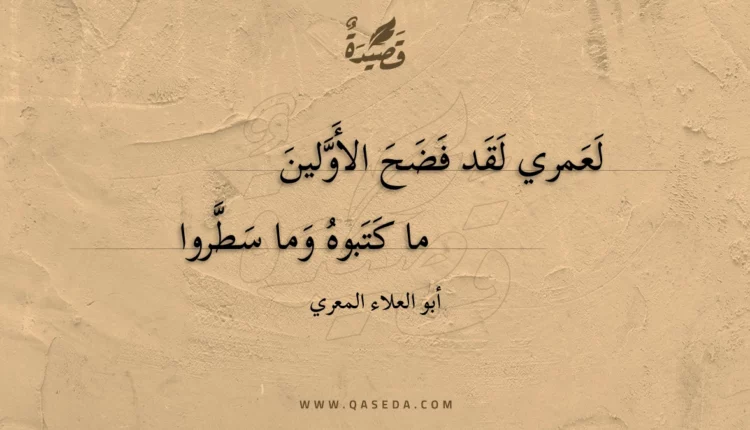 قَصِيدَةٌ
لَعَمري لَقَد فَضَحَ الأَوَّلينَ
ما كَتَبوهُ وَما سَطَّروا
أبو العلاء المعري
WWW.QASEDA.COM